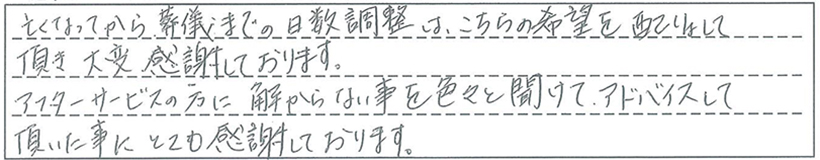 亡くなってから葬儀までの日数調整は、こちらの希望を配りょして
頂き大変感謝しております。
アフターサービスの方に解からない事を色々と聞けて、アドバイスして
頂いた事にとても感謝しております。